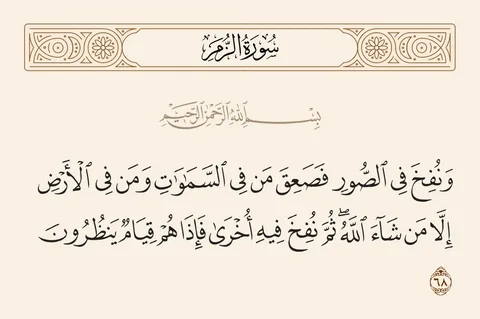 سُورَةُ الزُّمَرِ
بِسْمِ اللَّهِ الرَّحْمَٰنِ الرَّحِيمِ
وَنُفِخَ فِي ٱلصُّورِ فَصَعِقَ مَن فِي ٱلسَّمَٰوَٰتِ وَمَن فِي ٱلْأَرْضِ
إِلَّا مَن شَآءَ ٱللَّهُۖ ثُمَّ نُفِخَ فِيهِ أُخْرَىٰ فَإِذَا هُمْ قِيَامٌ يَنظُرُونَ
٦٨